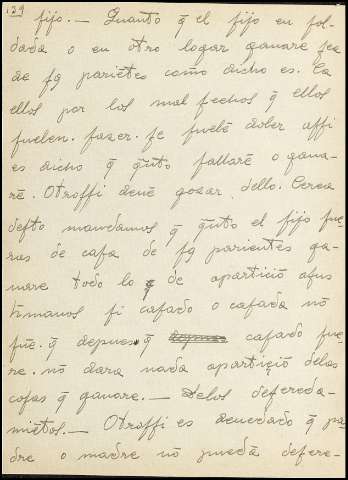 129
fijo.— Quanto q̃ el fijo en fol-
dada o en otro logar ganare fea
de fq pariẽtes como dicho es. Ca
ellos por los mal fechos q̃ ellos
fuelen. fazer. fe fuelẽ doler affi
es dicho q̃ q̃nto fallarẽ o gana-
rẽ. Otroffi deuẽ gozar dello. Cerca
defto mandamos q̃ q̃nto el fijo fue-
ras de cafa de fq parientes ga-
nare todo lo q de apartiçiõ afus
h̃manos fi cafado o cafada nõ
fuẽ. q̃ depues q̃ cafado fue-
re. nõ dara nada apartiçiõ delas
cofas q̃ ganare.— Delos defereda-
miẽtos.— Otroffi es deuedado q̃ pa-
dre o madre nõ puedã defere-